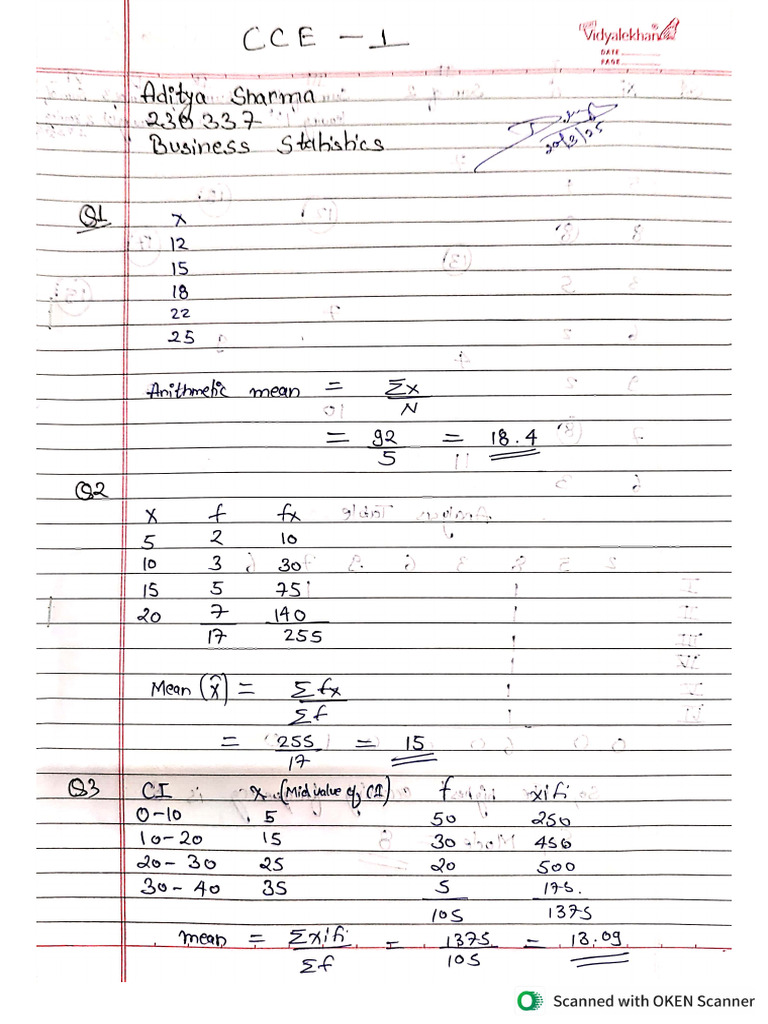 CCE - 1
Vidyalekhan
DATE
PAGE
Aditya Sharma
230337
Business Statistics
20/3/25
Q1
x
12
15
18
22
25
Arithmetic mean = Σx
N
= 92 = 18.4
5
Q2
x f fx
5 2 10
10 3 30
15 5 75
20 7 140
17 255
Mean (x̄) = Σfx
Σf
= 255 = 15
17
Q3 CI x (Mid value of CI) f xifi
0-10 5 50 250
10-20 15 30 450
20-30 25 20 500
30-40 35 5 175
105 1375
mean = Σxifi = 1375 = 13.09
Σf 105
Scanned with OKEN Scanner